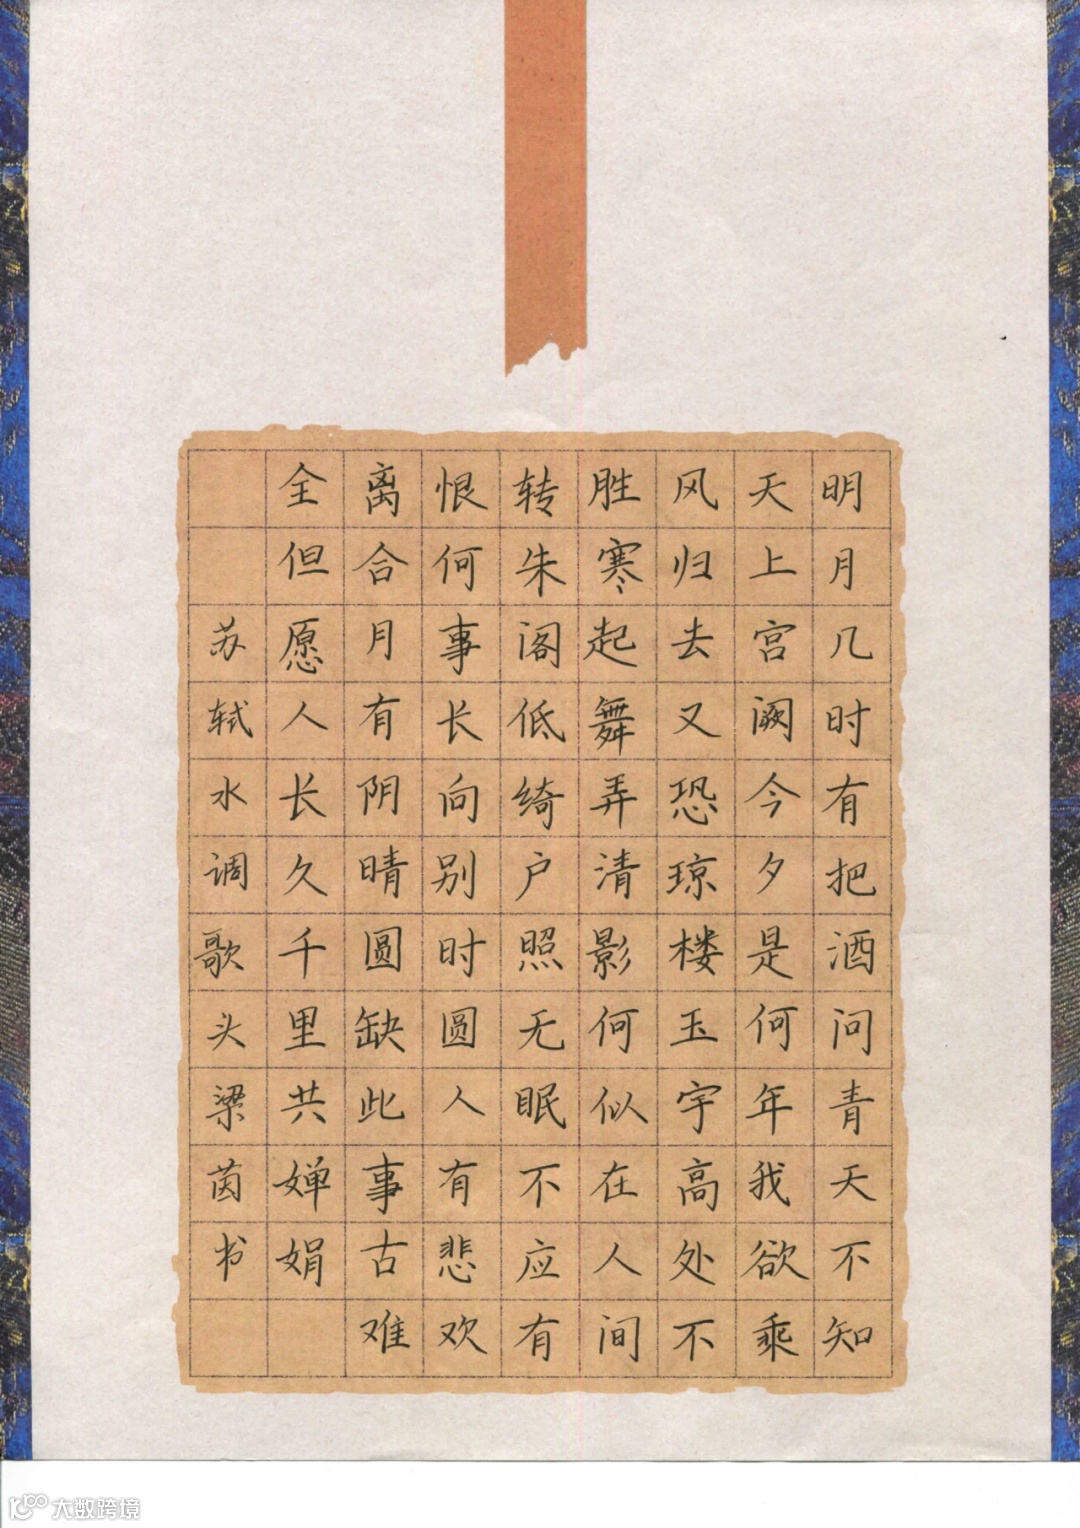 明月几时有把酒问青天不知
天上宫阙今夕是何年我欲乘
风归去又恐琼楼玉宇高处不
胜寒起舞弄清影何似在人间
转朱阁低绮户照无眠不应有
恨何事长向别时圆人有悲欢
离合月有阴晴圆缺此事古难
全但愿人长久千里共婵娟
苏轼水调歌头梁茵书
大数跨境